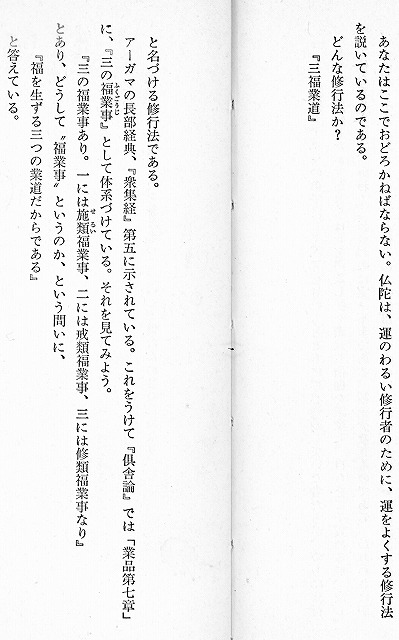 あなたはここでおどろかねばならない。仏陀は、運のわるい修行者のために、運をよくする修行法
を説いているのである。
どんな修行法か？
『三福業道』
と名づける修行法である。
アーガマの長部経典、『衆集経』第五に示されている。これをうけて『倶舎論』では「業品第七章」
に、『三の福業事』として体系づけている。それを見てみよう。
『三の福業事あり。一には施類福業事、二には戒類福業事、三には修類福業事なり』
とあり、どうして〝福業事〟というのか、という問いに、
『福を生ずる三つの業道だからである』
と答えている。